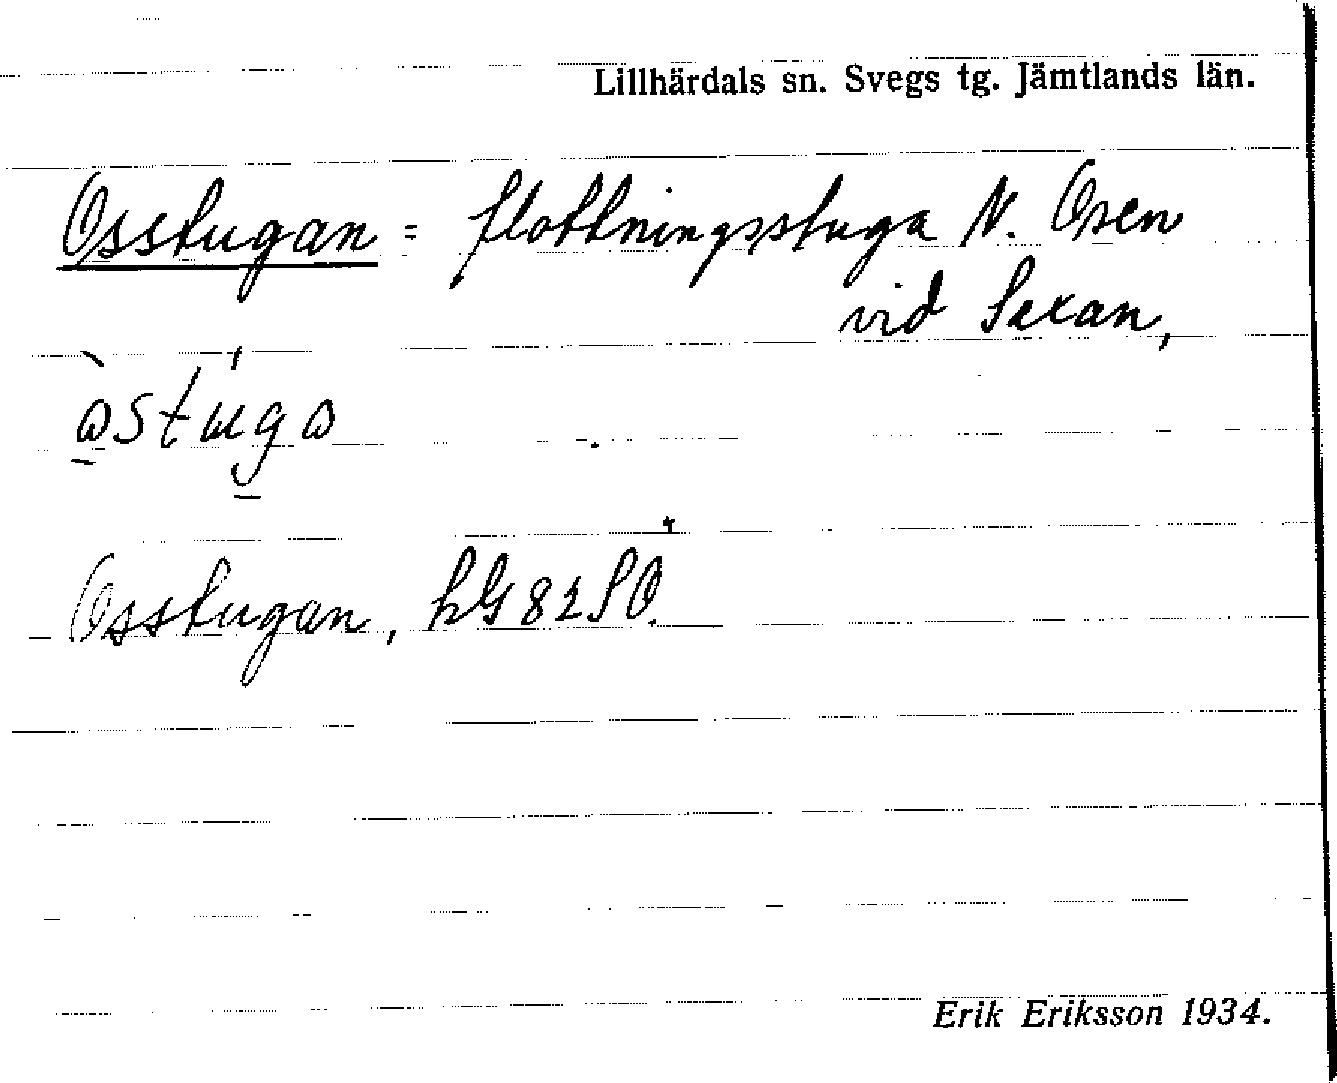 Lillhärdals sn. Svegs tg. Jämtlands län.
Osstugan = flottningsstuga N. Osen
vid Saxan,
Osstugan, hG 82 SO.
Erik Eriksson 1934.